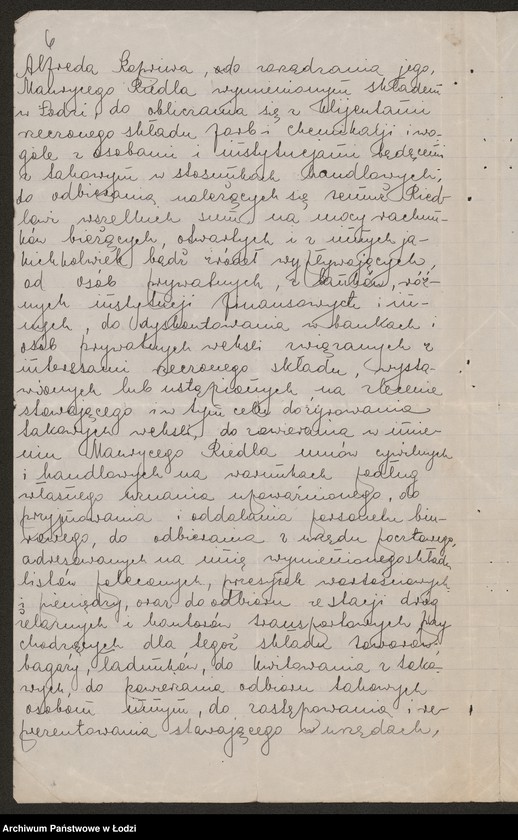 6
Alfreda Kopriwa, do zarządzania jego,
Maurycego Riedla wymienionym składem
w Łodzi, do obliczania się z klijentami
rzeczonego składu farb i chemikalji i wo-
góle z osobami i instytucjami będącemi
z takowym w stosunkach handlowych,
do odbierania należących się jemu Ried-
lowi wszelkich sum na mocy rachun-
ków bieżących, otwartych i z innych ja-
kichkolwiek bądź źródeł wypływających,
od osób prywatnych, z banków, róż-
nych instytucji finansowych i in-
nych, do dyskontowania w bankach i
osób prywatnych weksli związanych z
interesami rzeczonego składu, wysta-
wionych lub ustąpionych na zlecenie
stawającego i w tym celu do żyrowania
takowych weksli, do zawierania w imie-
niu Maurycego Riedla umów cywilnych
i handlowych na warunkach podług
własnego uznania upoważnionego, do
przyjmowania i oddalania personelu biu-
rowego, do odbierania z urzędu pocztowego,
adresowanych na imię wymienionego składu
listów poleconych, przesyłek wartościowych
i pieniędzy, oraz do odbioru ze stacji dróg
żelaznych i kantorów transportowych przy
chodzących dla tegoż składu towarów
bagaży, ładunków, do kwitowania z tako-
wych, do powierzania odbioru takowych
osobom innym, do zastępowania i re-
prezentowania stawającego w urzędach,
Archiwum Państwowe w Łodzi